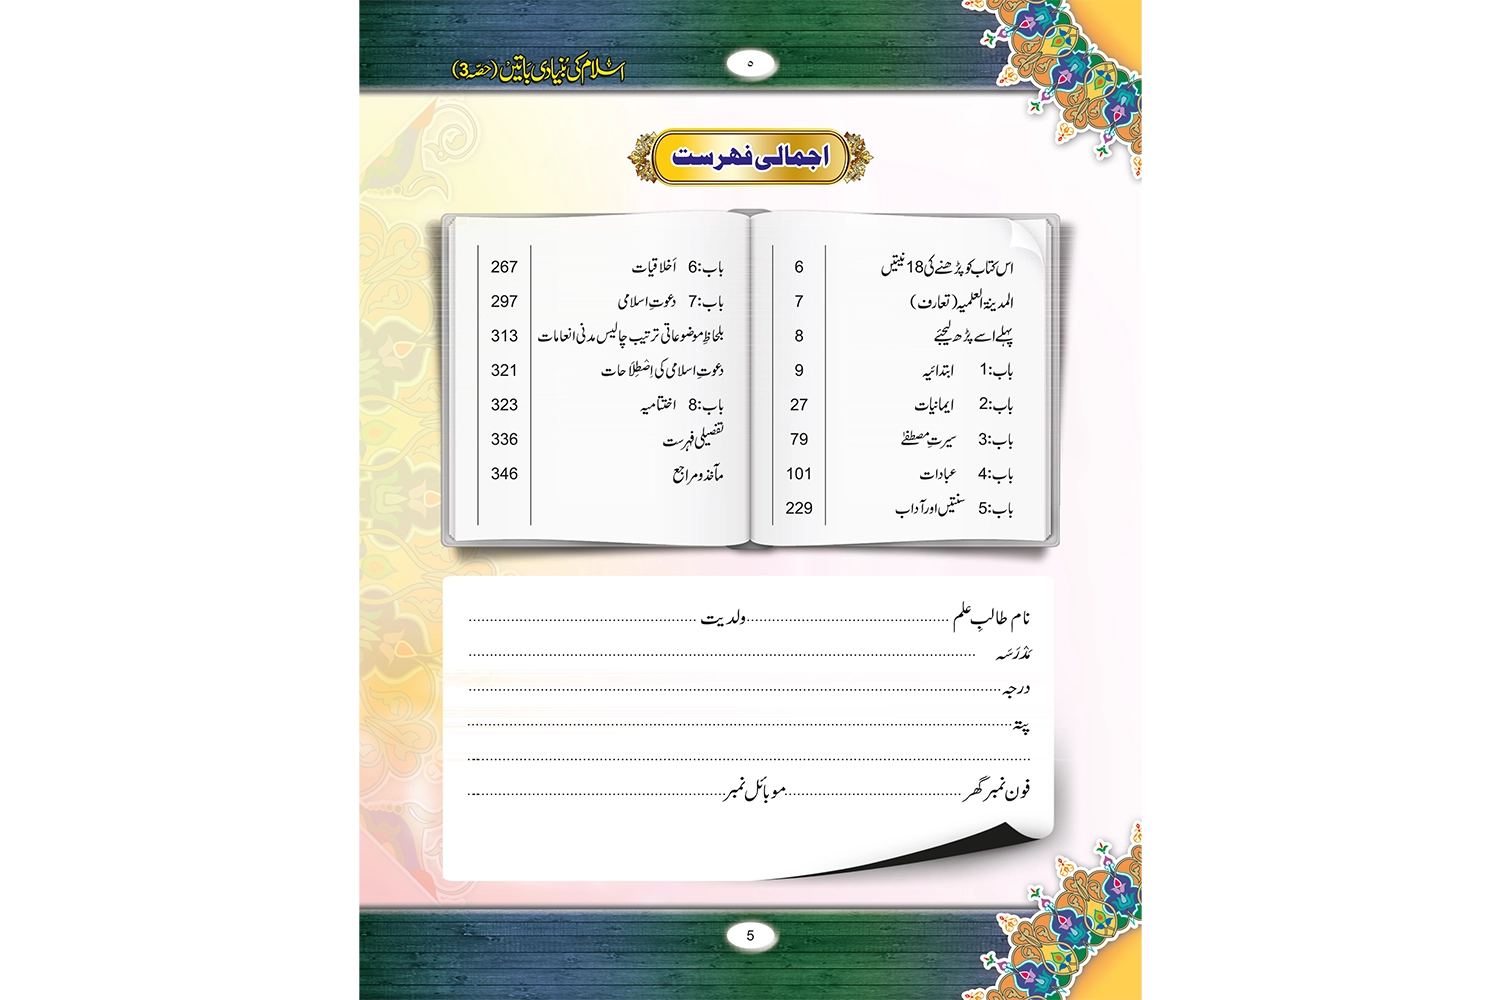 اسلام کی بُنیادی باتیں (حصّہ 3)
۵
اجمالی فہرست
اس کتاب کو پڑھنے کی 18 نیتیں 6
المدینۃ العلمیہ (تعارف) 7
پہلے اسے پڑھ لیجئے 8
باب:1 ابتدائیہ 9
باب:2 ایمانیات 27
باب:3 سیرتِ مصطفےٰ 79
باب:4 عبادات 101
باب:5 سنتیں اور آداب 229
باب:6 اَخلاقیات 267
باب:7 دعوتِ اسلامی 297
بلحاظِ موضوعاتی ترتیب چالیس مدنی انعامات 313
دعوتِ اسلامی کی اِصْطِلَاحات 321
باب:8 اختتامیہ 323
تفصیلی فہرست 336
مآخذ و مراجع 346
نام طالبِ علم ........ ولدیت ........
مَدْرَسَہ ........
درجہ ........
پتہ ........
........
فون نمبر گھر ........ موبائل نمبر ........
5